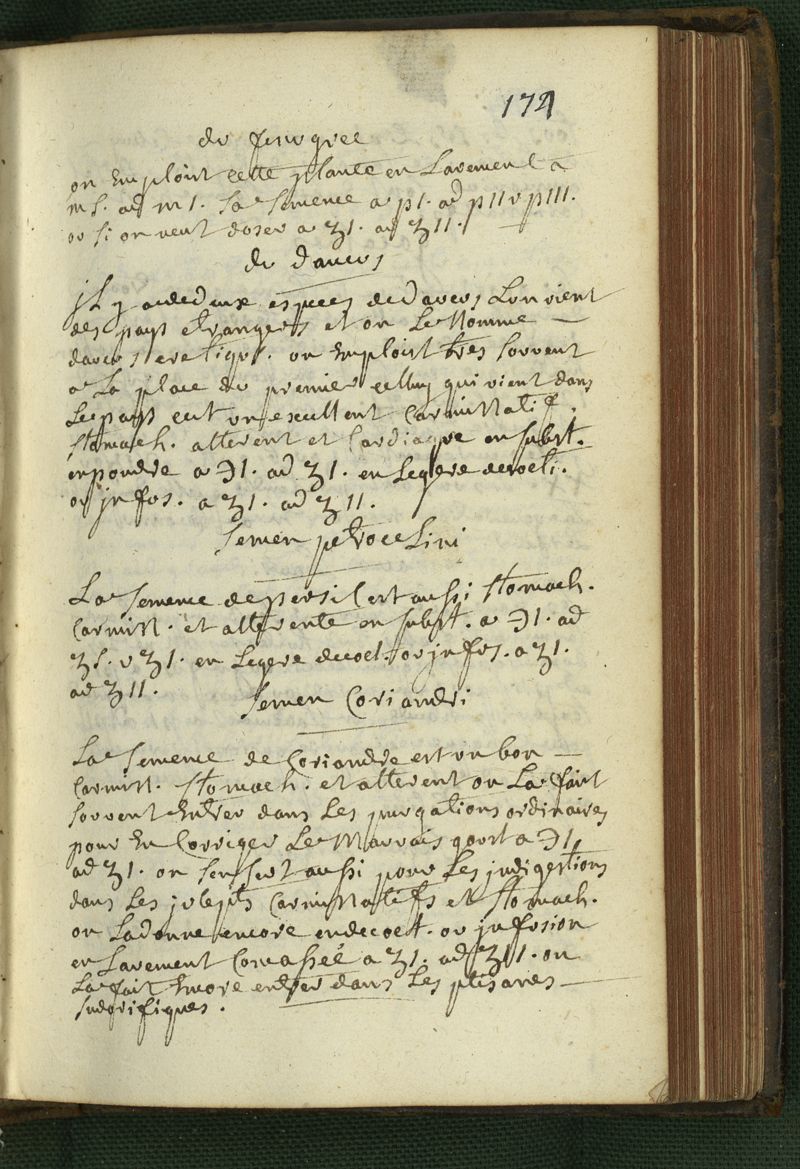 174
du fenugrec
on Emploit cette plante en Lavement a
m s. ad m 1. La semence a p1. ad p11 v p111.
ou si on veut doser a ʒ1. ad ʒ11.
du daucus
jL y adedeuxe especes dedaucus Lun vient
des pays etrangers et on Le Nomme —
daucus creticus. on Emploit tres souvent
a La place du premier celluy qui vient dans
Le pays cest un excellent Carminatif,
stomach. atterent et Cardiaque en subst.
en poudre a ℈1. ad ʒ1. en Legere decocti.
ou jnfus. a ʒ1. ad ʒ11.
Semen petrocelini
La semence depersil est aussi stomach.
Carmin. et atterente en subst. a ℈1. ad
ʒs. v ʒ1. en Legere decoct. ou jnfus. a ʒ1.
ad ʒ11.
Semen Coriandri
La semence de Coriandre est un bon —
Carmin. stomach. et atterent on La fait
souvent Entrer dans Les purgations ordinaires
pour En Corriger Le Mauvais goust a ℈1.
ad ʒ1. on sen sert aussi pour Les jndigestions
dans Les juleptes Carminatifs et stomach.
on Ladonne encore endecoct. ou jnfusion
en Lavement Concassée a ʒ1. ad ʒ11. on
La fait Encore entrer dans Les ptisanes —
sudorifiques.